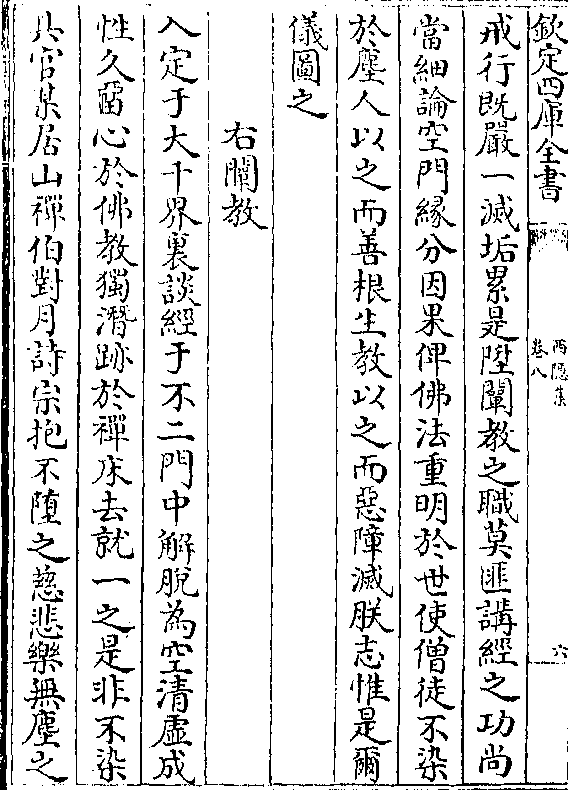 欽定四庫全書
西隠集
卷八
六
戒行既嚴一滅垢累是陞闡教之職莫匪講經之功尚
當細論空門緣分因果俾佛法重明於世使僧徒不染
於塵人以之而善根生教以之而惡障滅朕志惟是爾
儀圖之
右闡教
入定于大千界裏談經于不二門中解脫為空清虛成
性久畱心於佛教獨潛跡於禪床去就一之是非不染
具官某居山禪伯對月詩宗抱不墮之慈悲樂無塵之